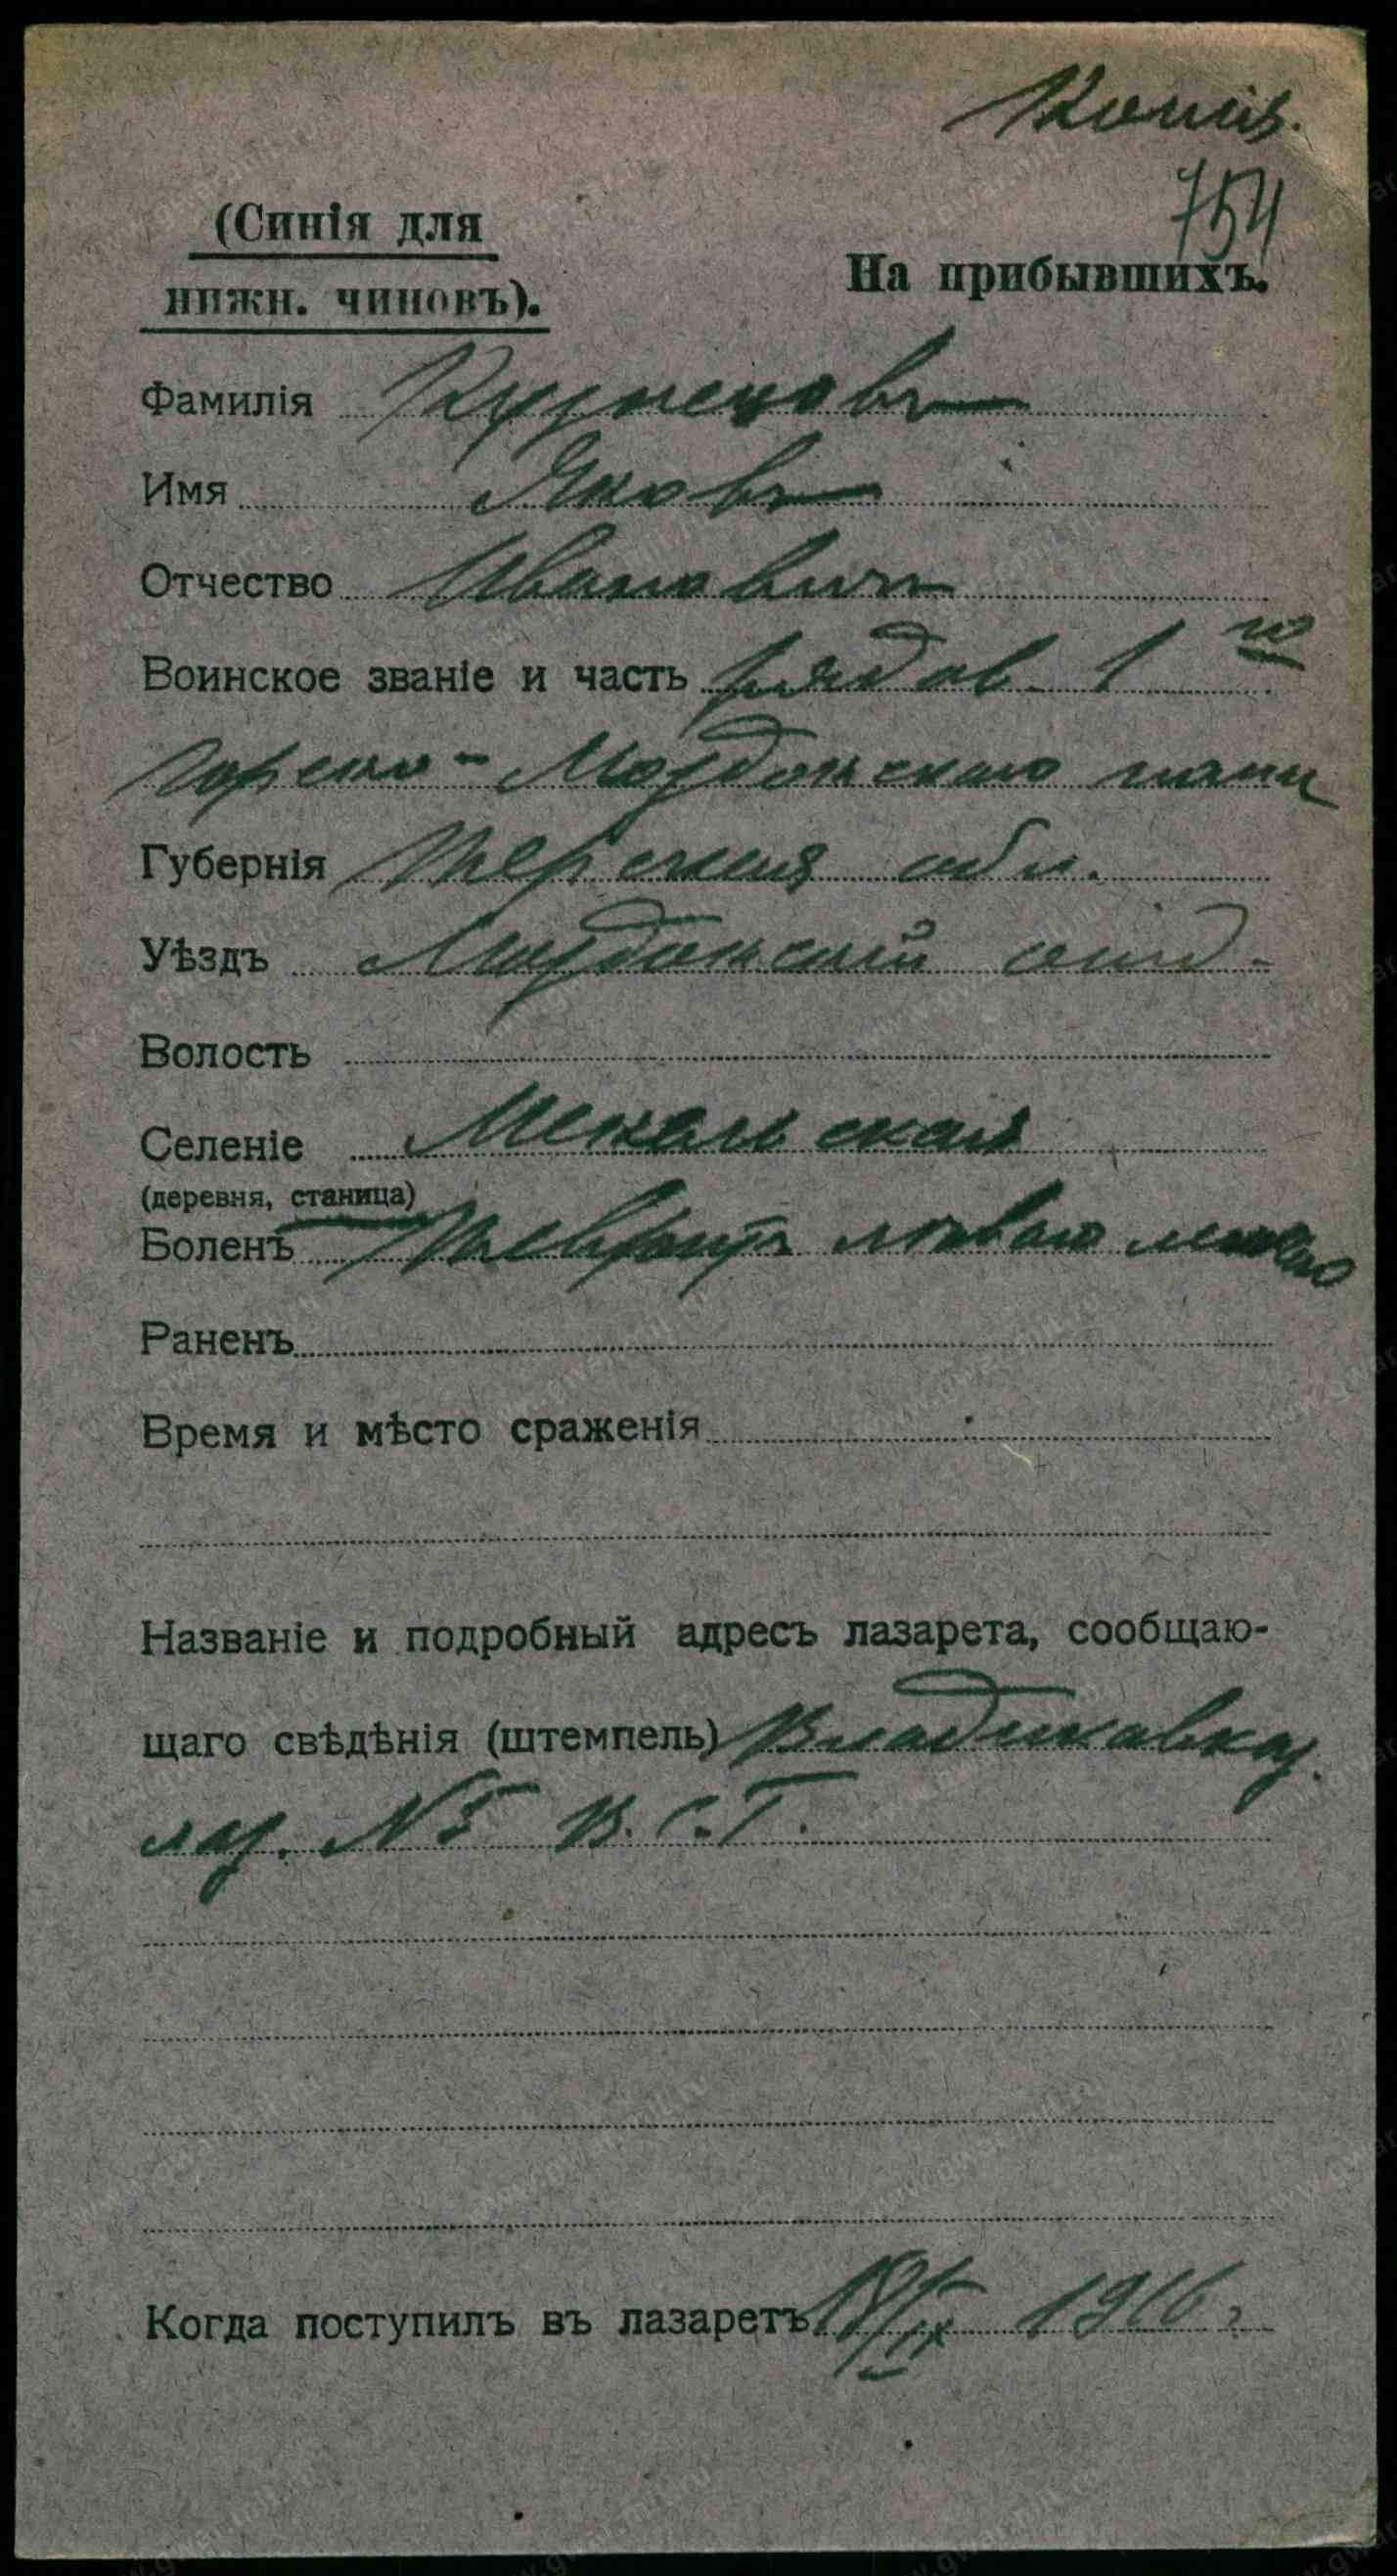 Копія.
754
(Синія для
нижн. чиновъ).
На прибывшихъ.
Фамилія Кузнецовъ
Имя Яковъ
Отчество Ивановичъ
Воинское званіе и часть рядов. 1го
Горско-Моздокскаго полка
Губернія Терская обл.
Уѣздъ Моздокскій отд.
Волость
Селеніе Мекенская
(деревня, станица)
Боленъ Плевритъ лѣваго легкаго
Раненъ
Время и мѣсто сраженія
Названіе и подробный адресъ лазарета, сообщаю-
щаго свѣдѣнія (штемпель) Владикавказ.
лаз. № 5 В. С. Г.
Когда поступилъ въ лазаретъ 18/IX 1916 г.